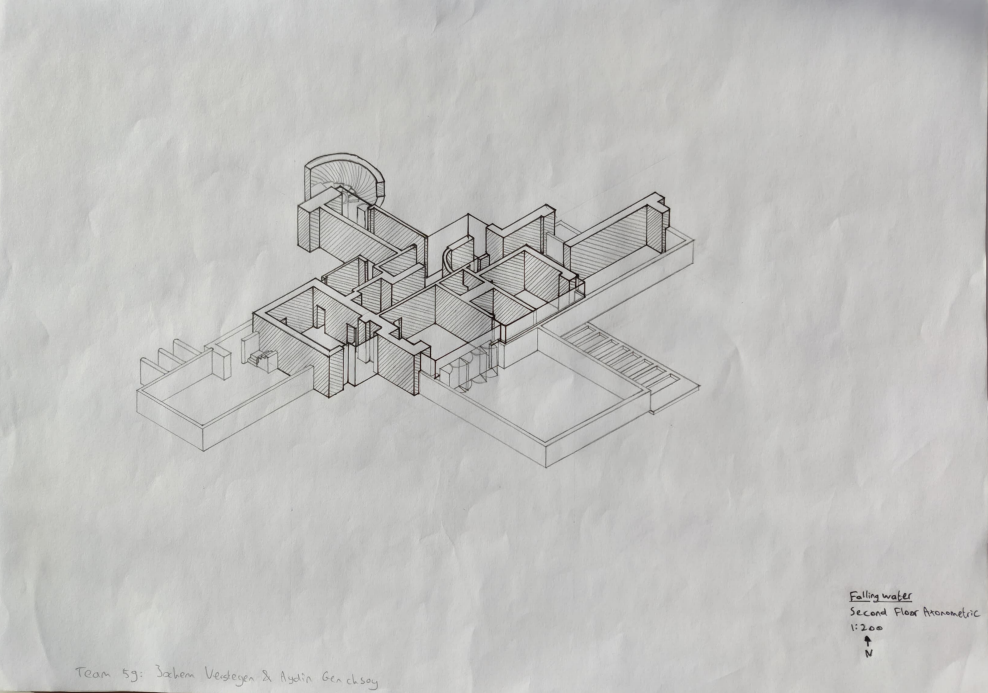 Falling water
Second Floor Axonometric
1:200
N
Team 59: Jochem Verstegen & Aydin Genchsoy